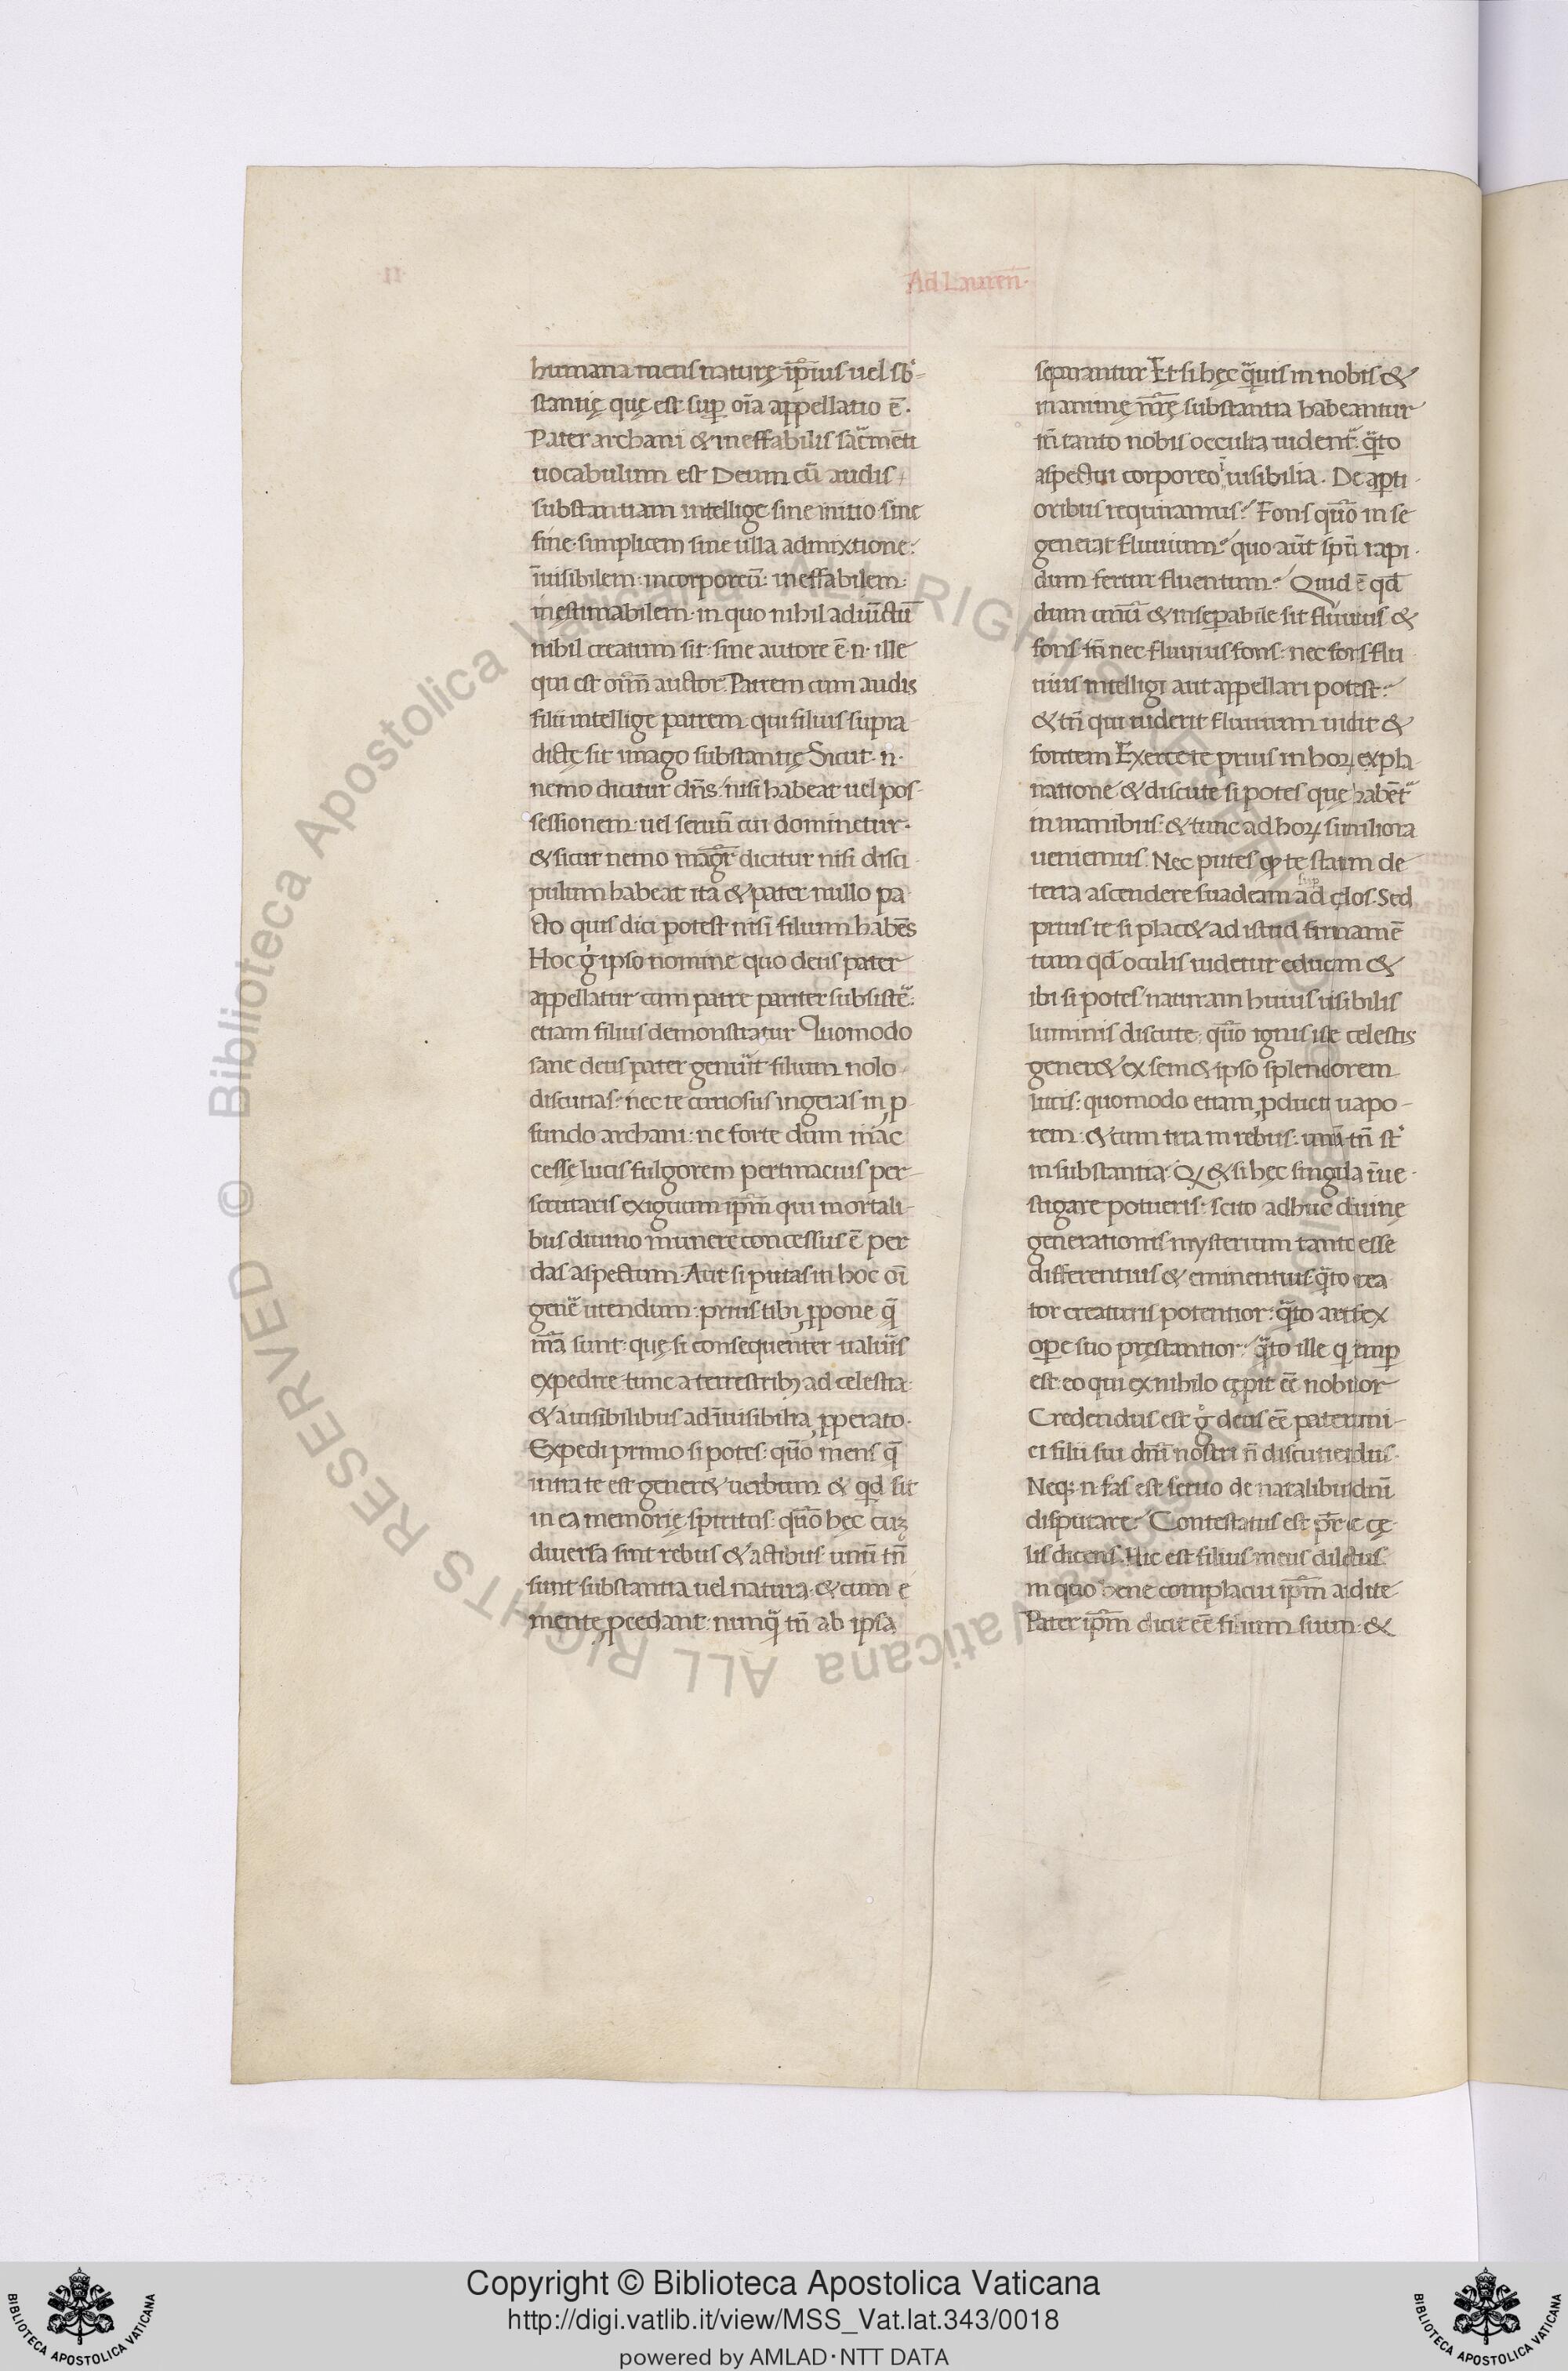 ·II·
Ad Lauren̄·
humana mens naturę ip̄ius uel sb̄-
stantię quę est suꝑ oīa appellatio ē·
Pater archani & ineffabilis sacm̄enti
uocabulum est Deum cū audis
substantiam intellige sine initio sine
fine· simplicem sine ulla admixtione:
īuisibilem: incorporeū: ineffabilem:
inęstimabilem· in quo nihil adiūctū
nihil creatum sit: sine autore ē·n· ille
qui est om̄ auctor. Patrem cum audis
filii intellige patrem· qui filius supra-
dictę sit imago substantię Sicut·n·
nemo dicitur dn̄s: nisi habeat uel pos-
sessionem uel seruū cui dominetur·
& sicut nemo magr̄ dicitur nisi disci-
pulum habeat ita & pater nullo pa-
cto quis dici potest nisi filium habēs
Hoc g̊ ipso nomine quo deus pater
appellatur cum patre pariter subsistē:
etiam filius demonstratur Quomodo
sane deus pater genuit filium nolo
discutias· nec te curiosus ingeras in ꝓ-
fundo archani: ne forte dum inac-
cessę lucis fulgorem pertinacius per-
scrutaris exiguum ip̄m qui mortali-
bus diuino munere concessus ē per-
das aspectum· Aut si putas in hoc oī
genē utendum: prius tibi ꝓpone q̄
nr̄a sunt: quę si consequenter ualuīs
expedire· tunc a terrestribꝫ ad celestia:
& a uisibilibus ad īuisibilia ꝓperato·
Expedi primo si potes: quo͞ mens q̄
intra te est gener& uerbum & qd̄ sit
in ea memorię spiritus: quo͞ hęc cuꝫ
diuersa sint rebus & actibus unū tn̄
sunt substantia uel natura· & cum e
mente ꝓcedant· nunq̄ tn̄ ab ipsa
separantur Et si hęc q̄uis in nobis &
in animę nr̄ę substantia habeantur
tn̄ tanto nobis occulta uident̄ q̄to
aspectui corporeo īuisibilia· De aꝑti-
oribus requiramus: Fons quo͞ in se
generat fluuium: quo aūt spū rapi-
dum fertur fluentum: Quid ē qd̄
dum unū & insepabile sit fluuius &
fons· tn̄ nec fluuius fons· nec fons flu-
uius intelligi aut appellari potest:
& tn̄ qui uiderit fluuium uidit &
fontem Exerce te prius in hoꝝ expla-
natione & discute si potes que habēt̄
in manibus: & tunc ad hoꝝ similiora
ueniemus· Nec putes ꝙ te statim de
terra ascendere suadeam ad sup̄ cęlos· Sed
prius te si plac& ad istud firmamē-
tum qd̄ oculis uidetur educam &
ibi si potes naturam huius uisibilis
luminis discute: quo͞ ignis iste celestis
gener& ex semetipso splendorem
lucis: quomodo etiam ꝓducit uapo-
rem: & cum tria in rebus· unū tn̄ st̄
in substantia· Qꝫ & si hęc singula īue-
stigare potueris: scito adhuc diuinę
generationis mysterium tanto esse
differentius & eminentius· q̄to crea-
tor creaturis potentior: q̄to artifex
opere suo pręstantior: q̄to ille q̄ semꝑ
est: eo qui ex nihilo cępit eē nobilior
Credendus est g̊ deus eē pater uni-
ci filii sui dn̄i nostri n̄ discutiendus·
Neqꝫ·n· fas est seruo de natalibus dn̄i
disputare· Contestatus est pr̄ e cę-
lis dicens· Hic est filius meus dilectus
in quo bene complacui ip̄m audite
Pater ip̄m dicit eē filium suum: &
© Biblioteca Apostolica Vaticana ALL RIGHTS RESERVED
© Biblioteca Apostolica Vaticana ALL RIGHTS RESERVED
Copyright © Biblioteca Apostolica Vaticana
http://digi.vatlib.it/view/MSS_Vat.lat.343/0018
powered by AMLAD·NTT DATA
BIBLIOTECA APOSTOLICA VATICANA
BIBLIOTECA APOSTOLICA VATICANA